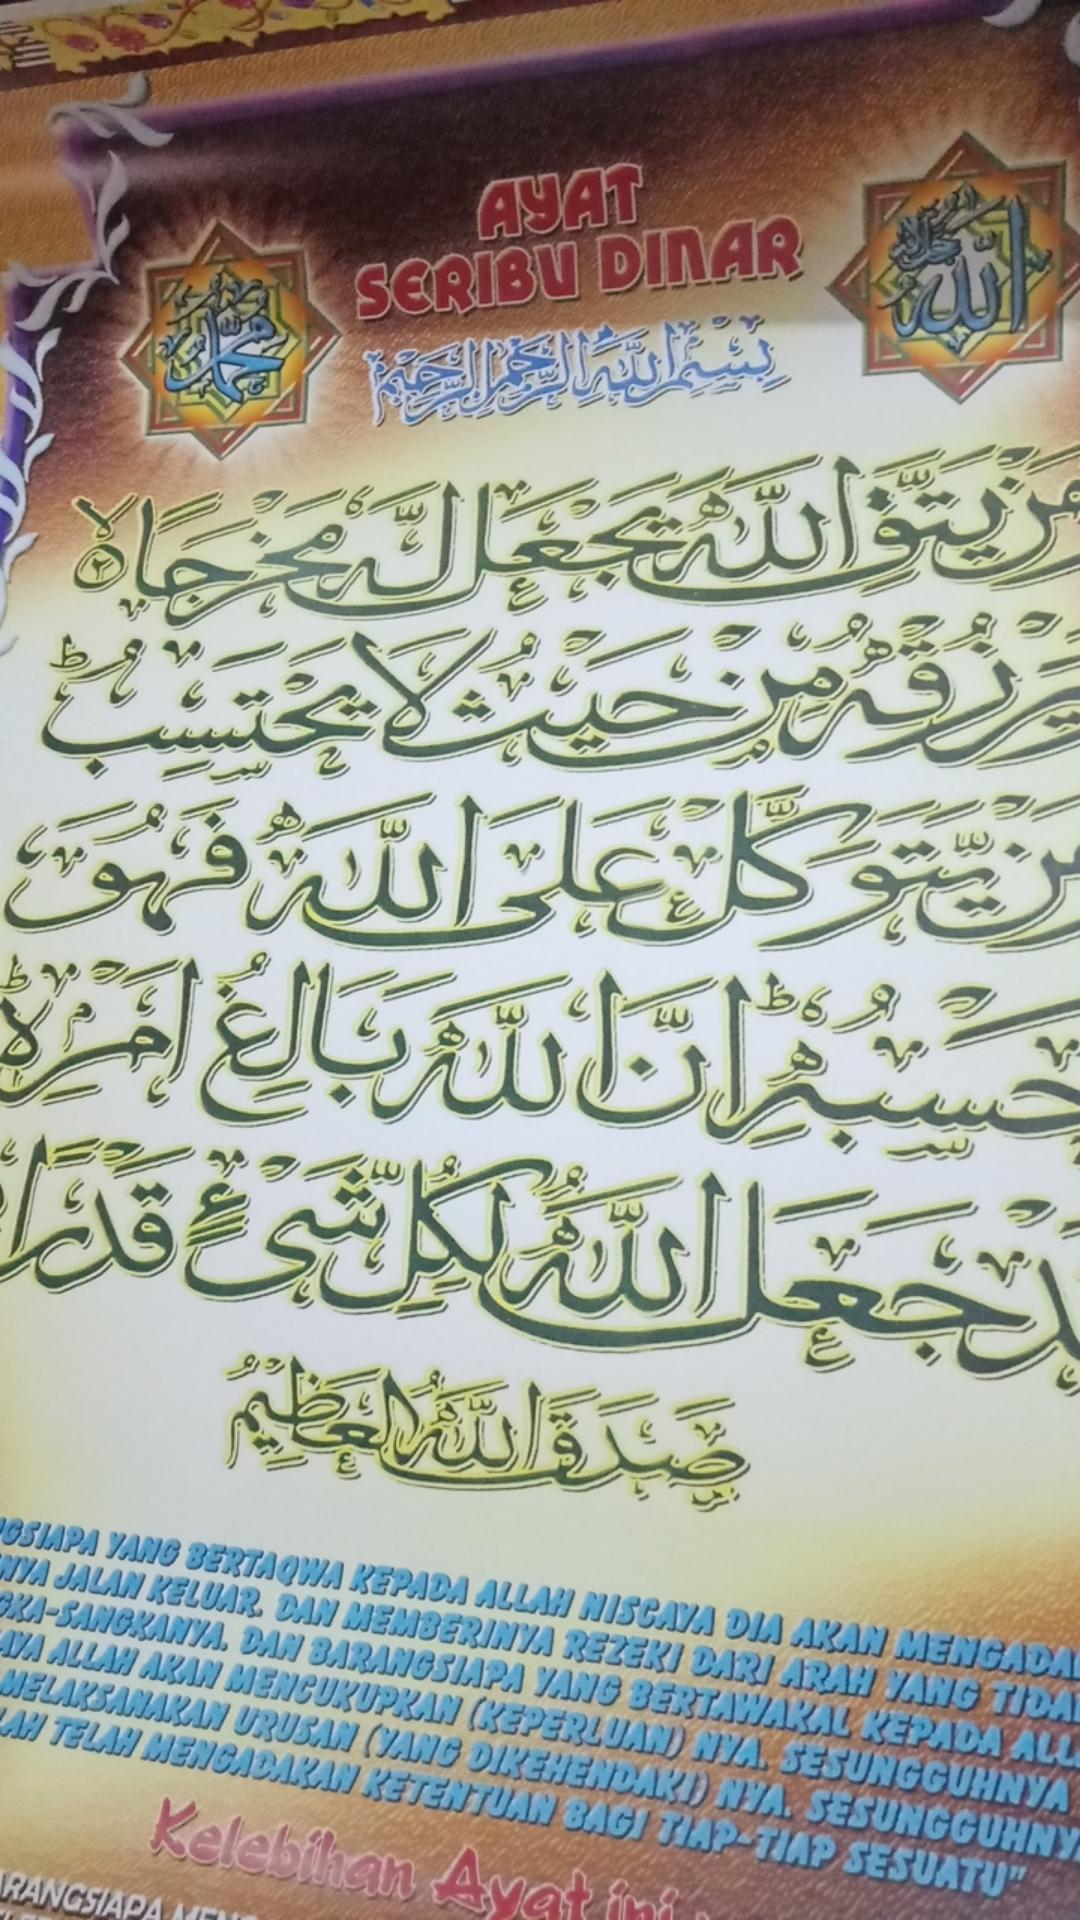 AYAT
SERIBU DINAR
محمد
الله جل جلاله
بِسْمِ اللَّهِ الرَّحْمَٰنِ الرَّحِيمِ
مَنْ يَتَّقِ اللَّهَ يَجْعَلْ لَهُ مَخْرَجًا ۙ ٢
يَرْزُقْهُ مِنْ حَيْثُ لَا يَحْتَسِبُ ۗ
مَنْ يَتَوَكَّلْ عَلَى اللَّهِ فَهُوَ
حَسْبُهُ ۗ إِنَّ اللَّهَ بَالِغُ أَمْرِهِ ۗ
جَعَلَ اللَّهُ لِكُلِّ شَيْءٍ قَدْرًا
صَدَقَ اللَّهُ الْعَظِيمُ
YANG BERTAQWA KEPADA ALLAH NISCAYA DIA AKAN
JALAN KELUAR. DAN MEMBERINYA REZEKI DARI ARAH YANG
DAN BARANGSIAPA YANG BERTAWAKAL KEPADA
ALLAH AKAN MENCUKUPKAN (KEPERLUAN) NYA. SESUNGGUHNYA
MELAKSANAKAN URUSAN (YANG DIKEHENDAKI) NYA. SESUNGGUHNYA
TELAH MENGADAKAN KETENTUAN BAGI TIAP-TIAP SESUATU"
Kelebihan Ayat ini